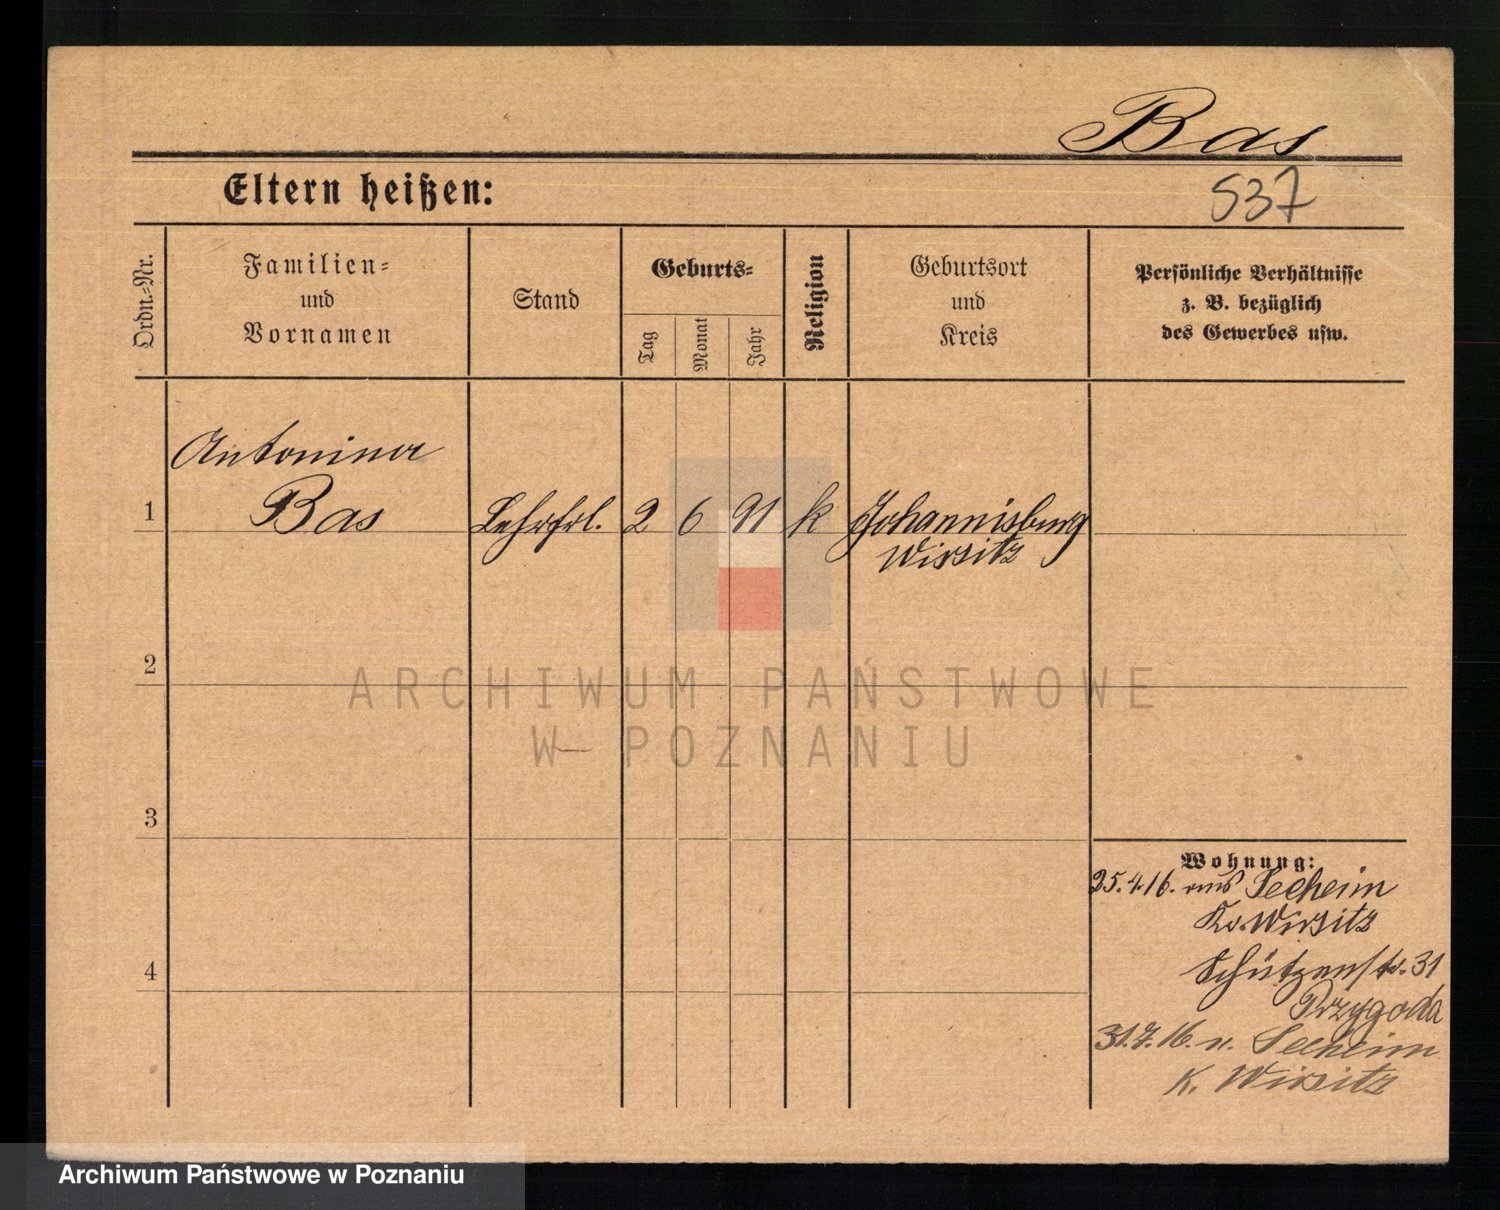 Bas
Eltern heißen:
537
Ordn.-Nr.
Familien-
und
Vornamen
Stand
Geburts-
Tag
Monat
Jahr
Religion
Geburtsort
und
Kreis
Persönliche Verhältnisse
z. B. bezüglich
des Gewerbes usw.
Antonina
1 Bas Lehrfrl. 2 6 91 k Johannisburg
Wirsitz
2
ARCHIWUM PAŃSTWOWE
W POZNANIU
3
Wohnung:
25.4.16. aus Seeheim
Kr. Wirsitz
4
Schützenstr. 31
Przygoda
31.7.16. n. Seeheim
K. Wirsitz
Archiwum Państwowe w Poznaniu